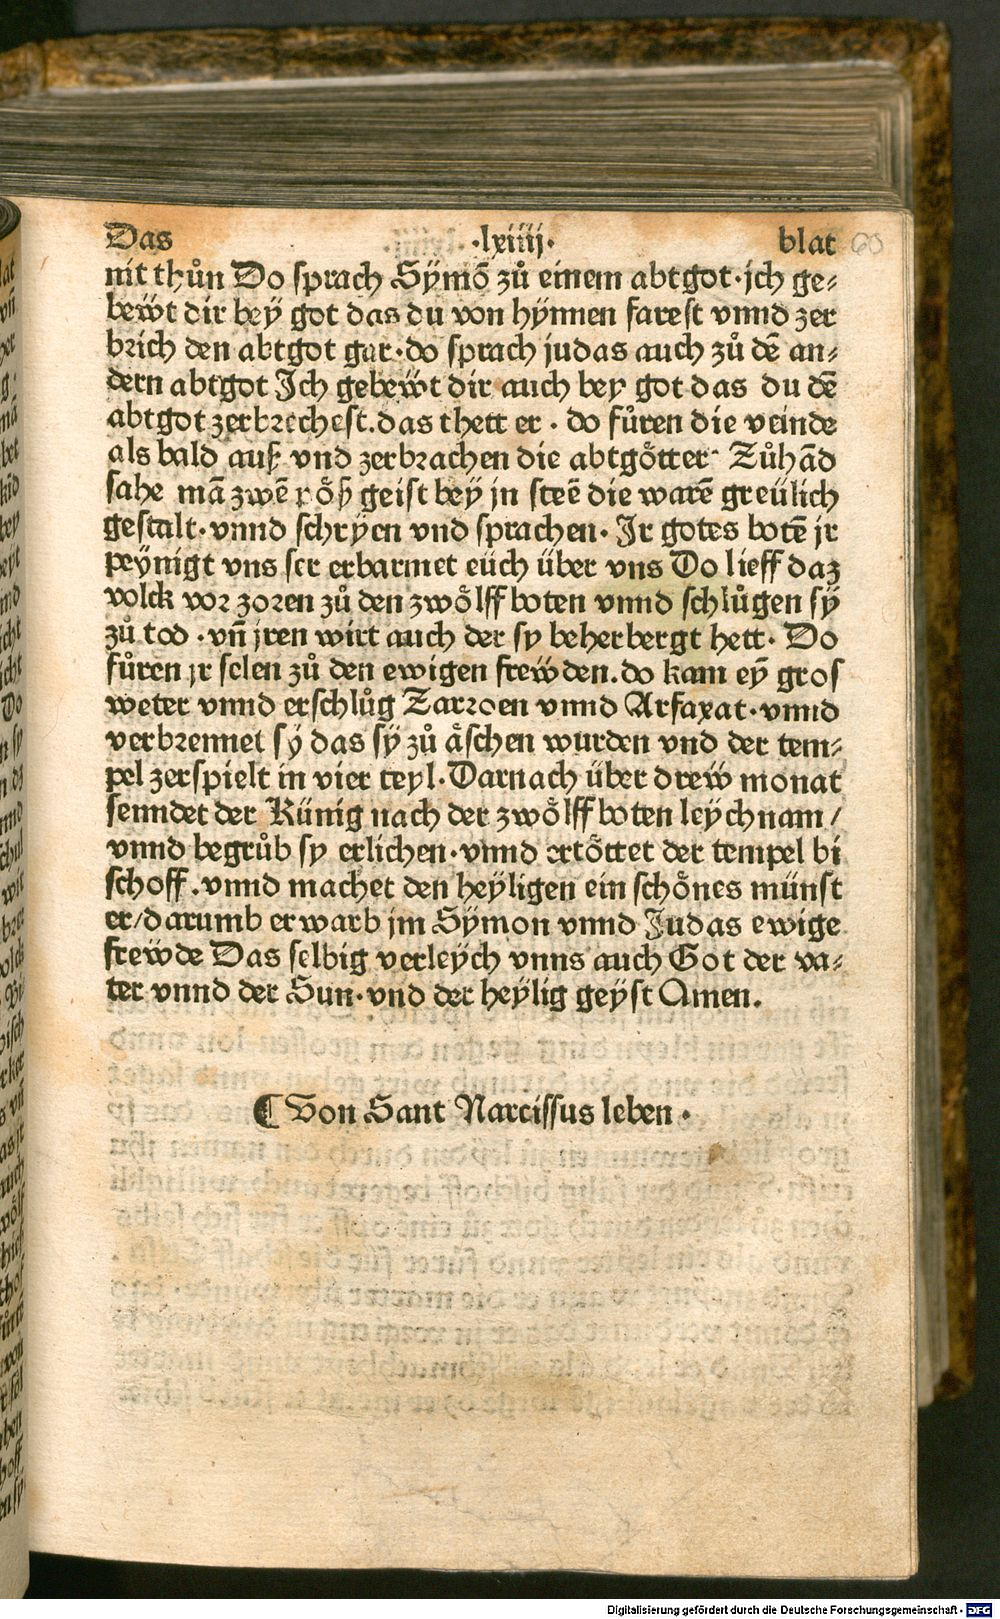 Das ·lxiiij· blat 60
nit thůn Do sprach Sÿmō zů einem abtgot·jch ge⸗
bewt dir bey got das du von hÿnnen farest vnnd zer
brich den abtgot gar·do sprach judas auch zů dē an⸗
dern abtgot Ich gebewt dir auch bey got das du dē
abtgot zerbrechest.das thett er · do fůren die veinde
als bald auß vnd zerbrachen die abtgötter· Zůhād
sahe mā zwē röß geist beÿ jn steē die warē greülich
gestalt·vnnd schrÿen vnd sprachen· Ir gotes botē jr
peÿnigt vns ser erbarmet eüch über vns Do lieff daz
volck vor zoren zů den zwölff boten vnnd schlůgen sÿ
zů tod ·vn̄ jren wirt auch der sy beherbergt hett· Do
fůren jr selen zů den ewigen frewden.do kam eÿ gros
weter vnnd erschlůg Zarroen vnnd Arfaxat·vnnd
verbrennet sÿ das sÿ zů äschen wurden vnd der tem⸗
pel zerspielt in vier teyl·Darnach über drew monat
senndet der Künig nach der zwölff boten leychnam /
vnnd begrůb sy erlichen·vnnd ertöttet der tempel bi
schoff.vnnd machet den heÿligen ein schönes münst
er/darumb erwarb jm Sÿmon vnnd Judas ewige
frewde Das selbig verleÿch vnns auch Got der va⸗
ter vnnd der Sun·vnd der heÿlig geÿst Amen.
¶ Von Sant Narcissus leben·
Digitalisierung gefördert durch die Deutsche Forschungsgemeinschaft - DFG